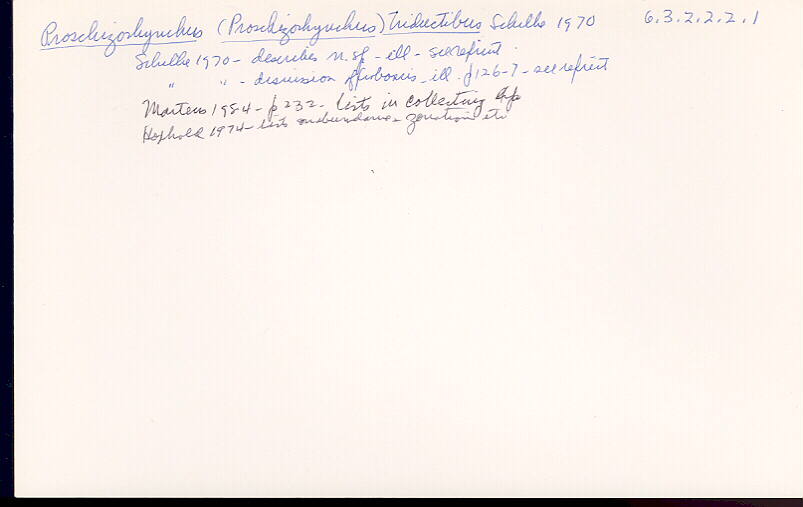 Proschizorhynchus (Proschizorhynchus) triductibus Schilke 1970 6.3.2.2.2.1
Schilke 1970 - describes n. sp - ill - see reprint
" " - discussion of ill. p 126-7 - see reprint
Martens 1984 - p 232 - lists in collecting
Hoxhold 1974 - lists abundance zonation etc